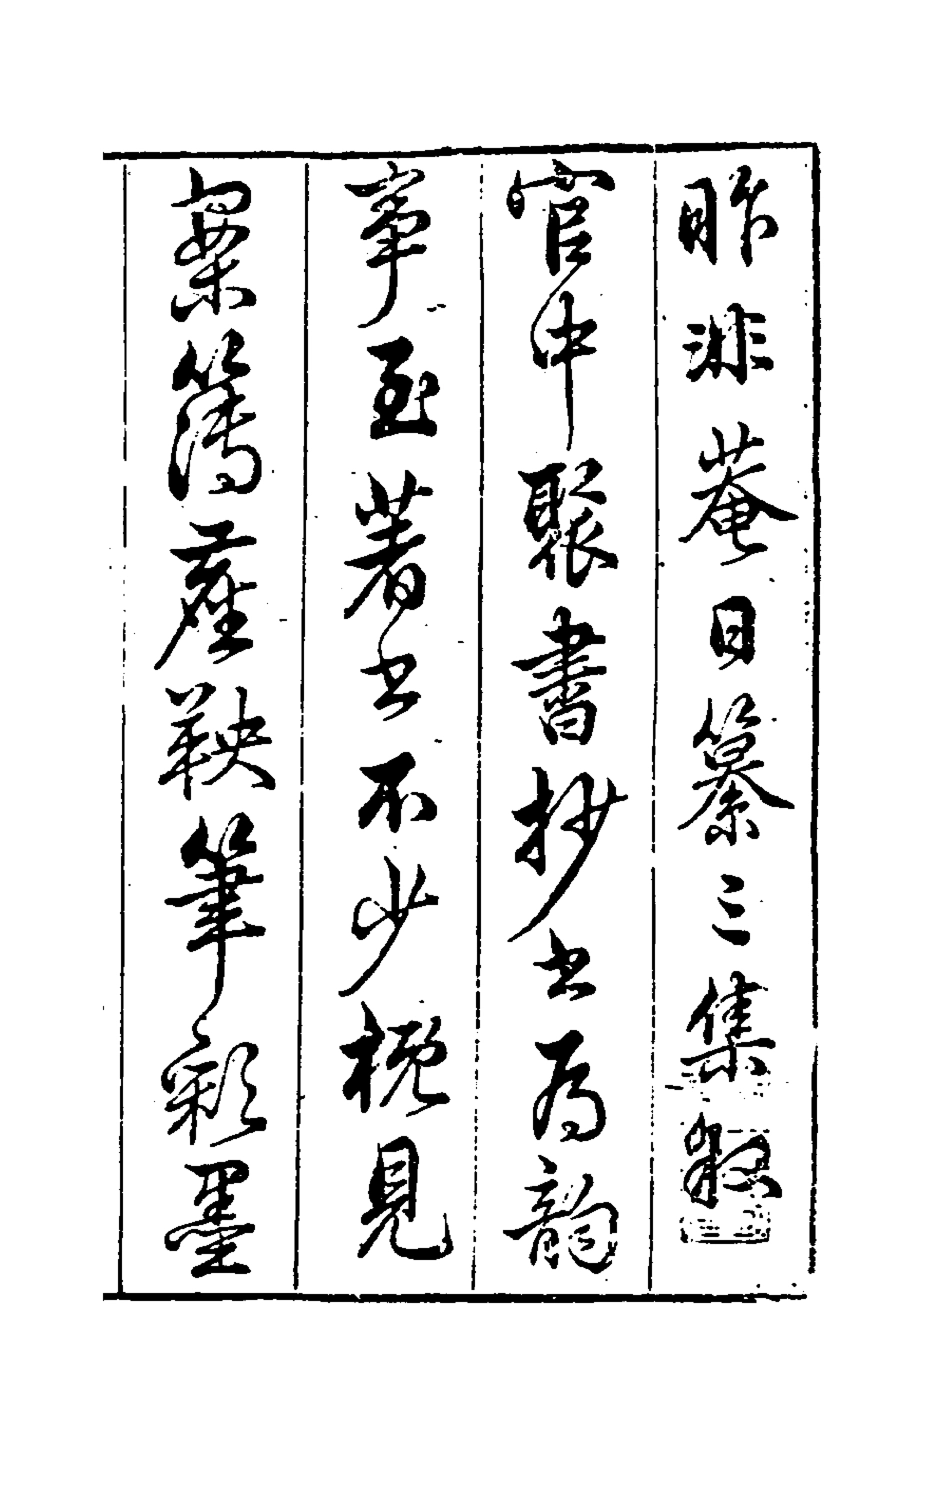 昨非菴日纂三集叙
官中聚書抄书為韻
事至著书不少概見
案簿塵鞅筆彩墨